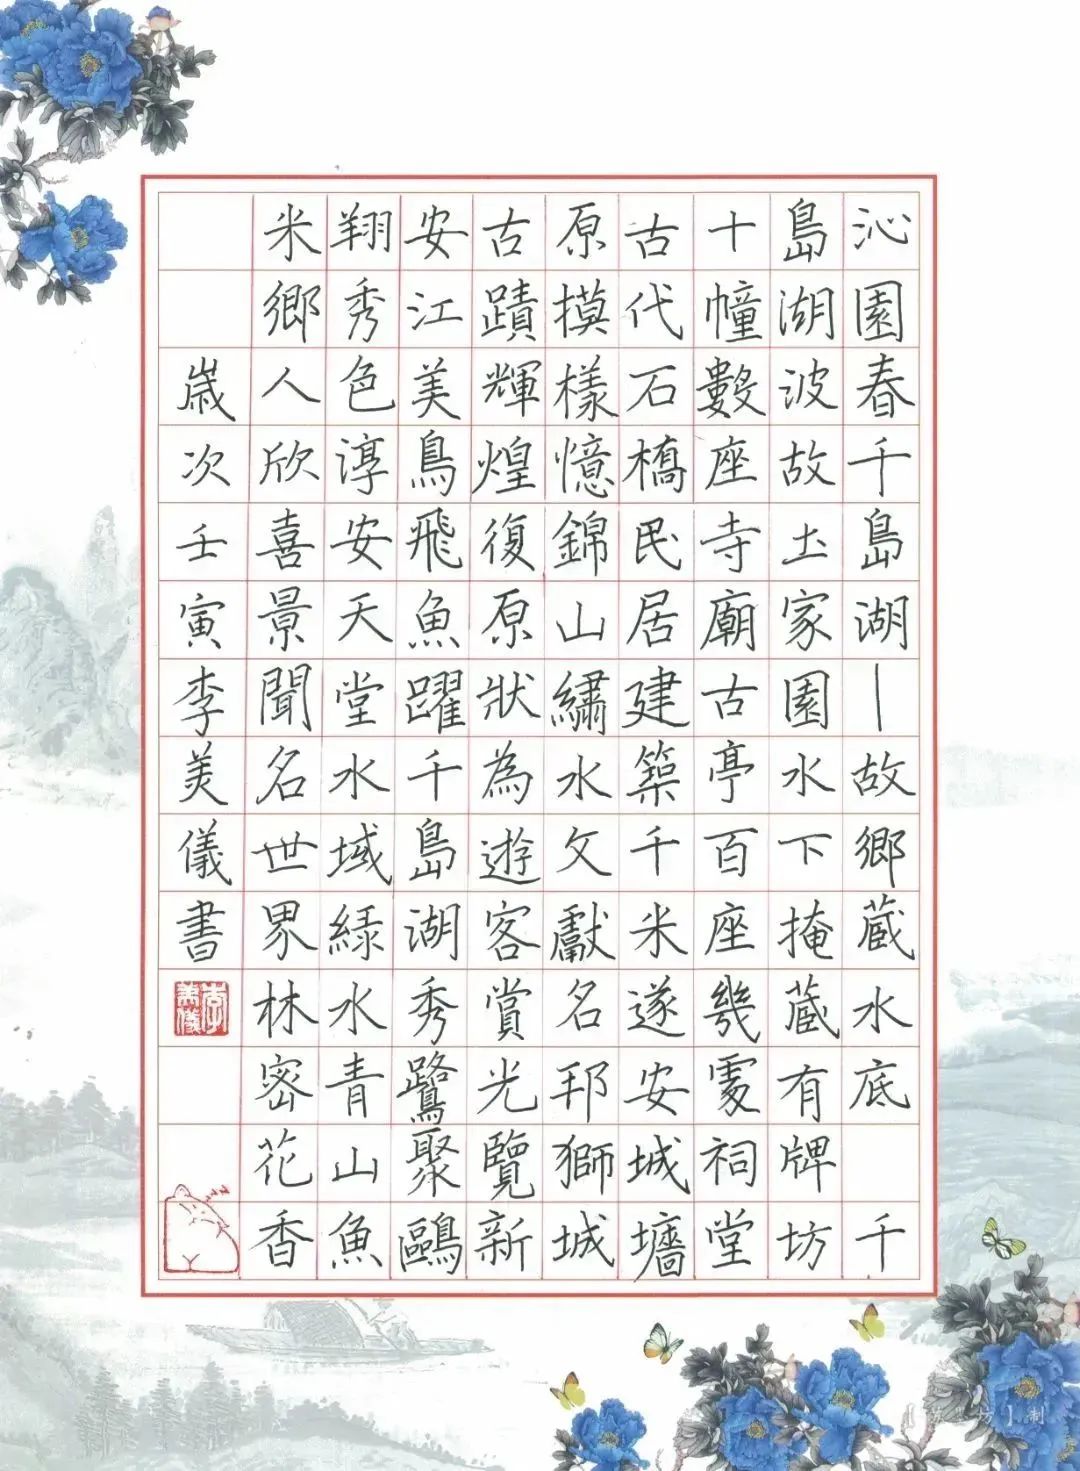 沁園春千島湖—故鄉蔵水底 千
島湖波故土家園水下掩蔵有牌坊
十幢數座寺廟古亭百座幾處祠堂
古代石橋民居建築千米遂安城墻
原摸樣憶錦山繡水文獻名邦獅城
古蹟輝煌復原狀為遊客賞光覽新
安江美鳥飛魚躍千島湖秀鷺聚鷗
翔秀色淳安天堂水域綠水青山魚
米鄉人欣喜景聞名世界林密花香
歳次壬寅李美儀書
李美儀